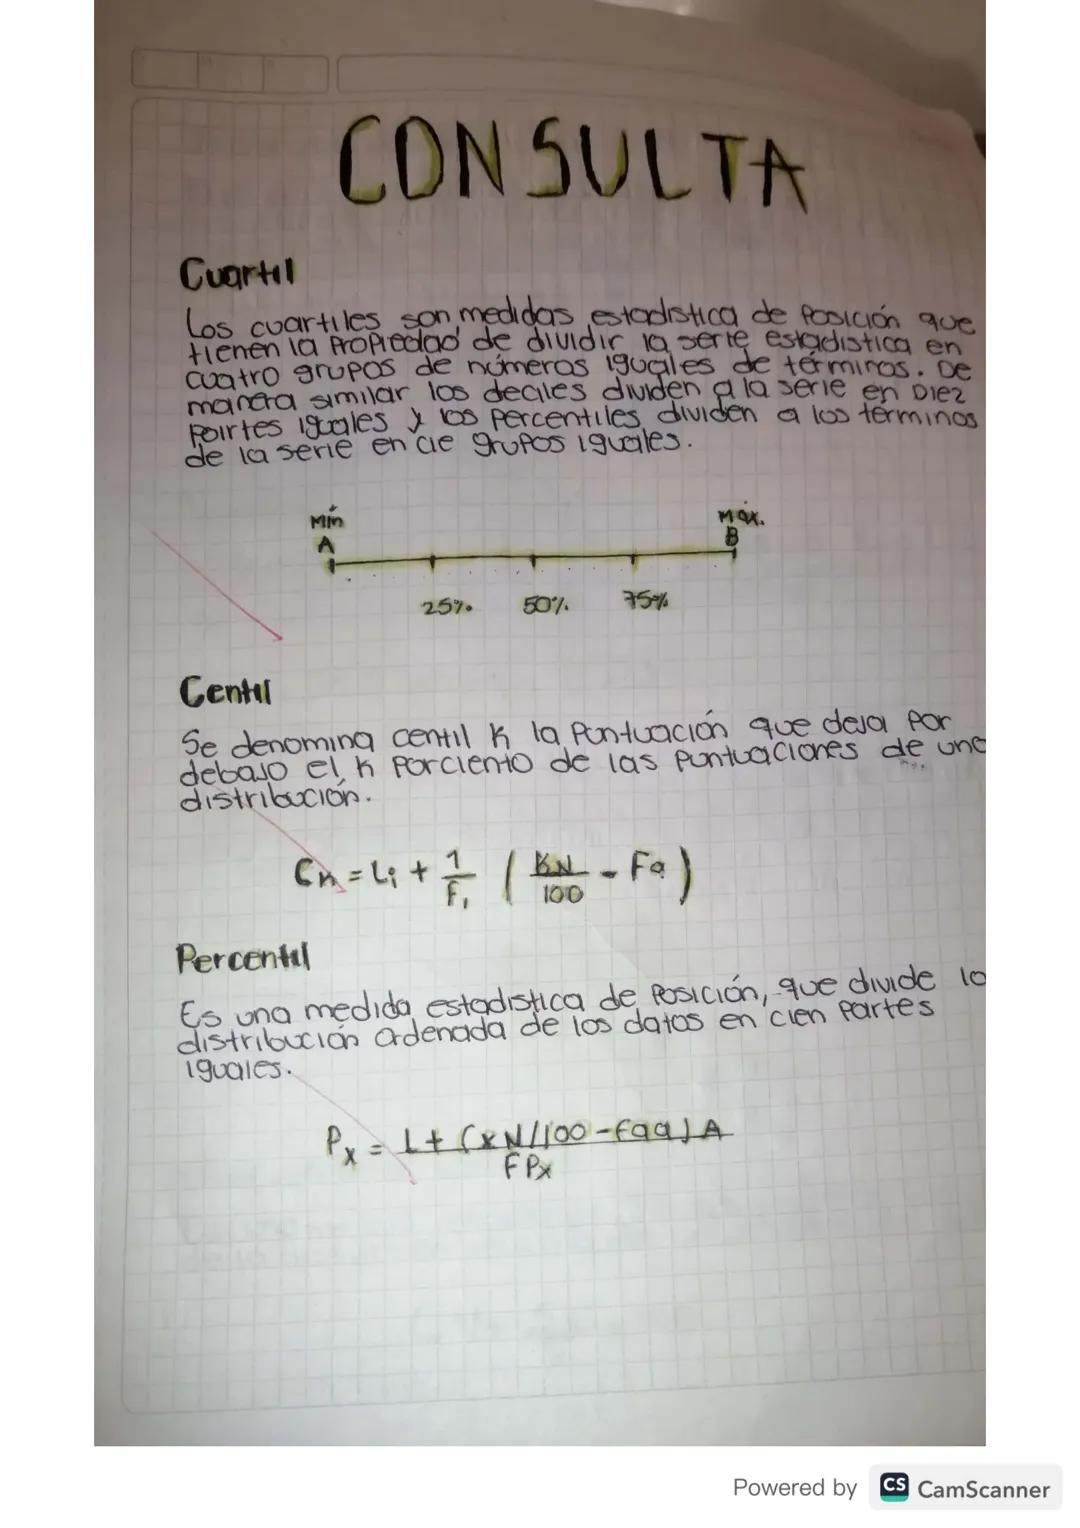 CONSULTA
Cuartil
Los cuartiles son medidas estadistica de Posición que
tienen la Propiedad de dividir la serie estadistica en
cuatro grupos de números iguales de términos. De
manera similar los deciles dividen a la serie en Diez
Poirtes iguales y los Percentiles dividen a los términos
de la serie en cie grupos iguales.
Mín Máx.
A B
25% 50% 75%
Centil
Se denomina centil K la Puntuación que deja Por
debajo el K Porciento de las Puntuaciones de una
distribución.
CK = Li + 1/F1 ( KN/100 - Fa )
Percentil
Es una medida estadistica de Posición, que divide la
distribución ordenada de los datos en cien Partes
iguales.
Px = L + (xN/100 - Faa) A
FPx
Powered by CS CamScanner